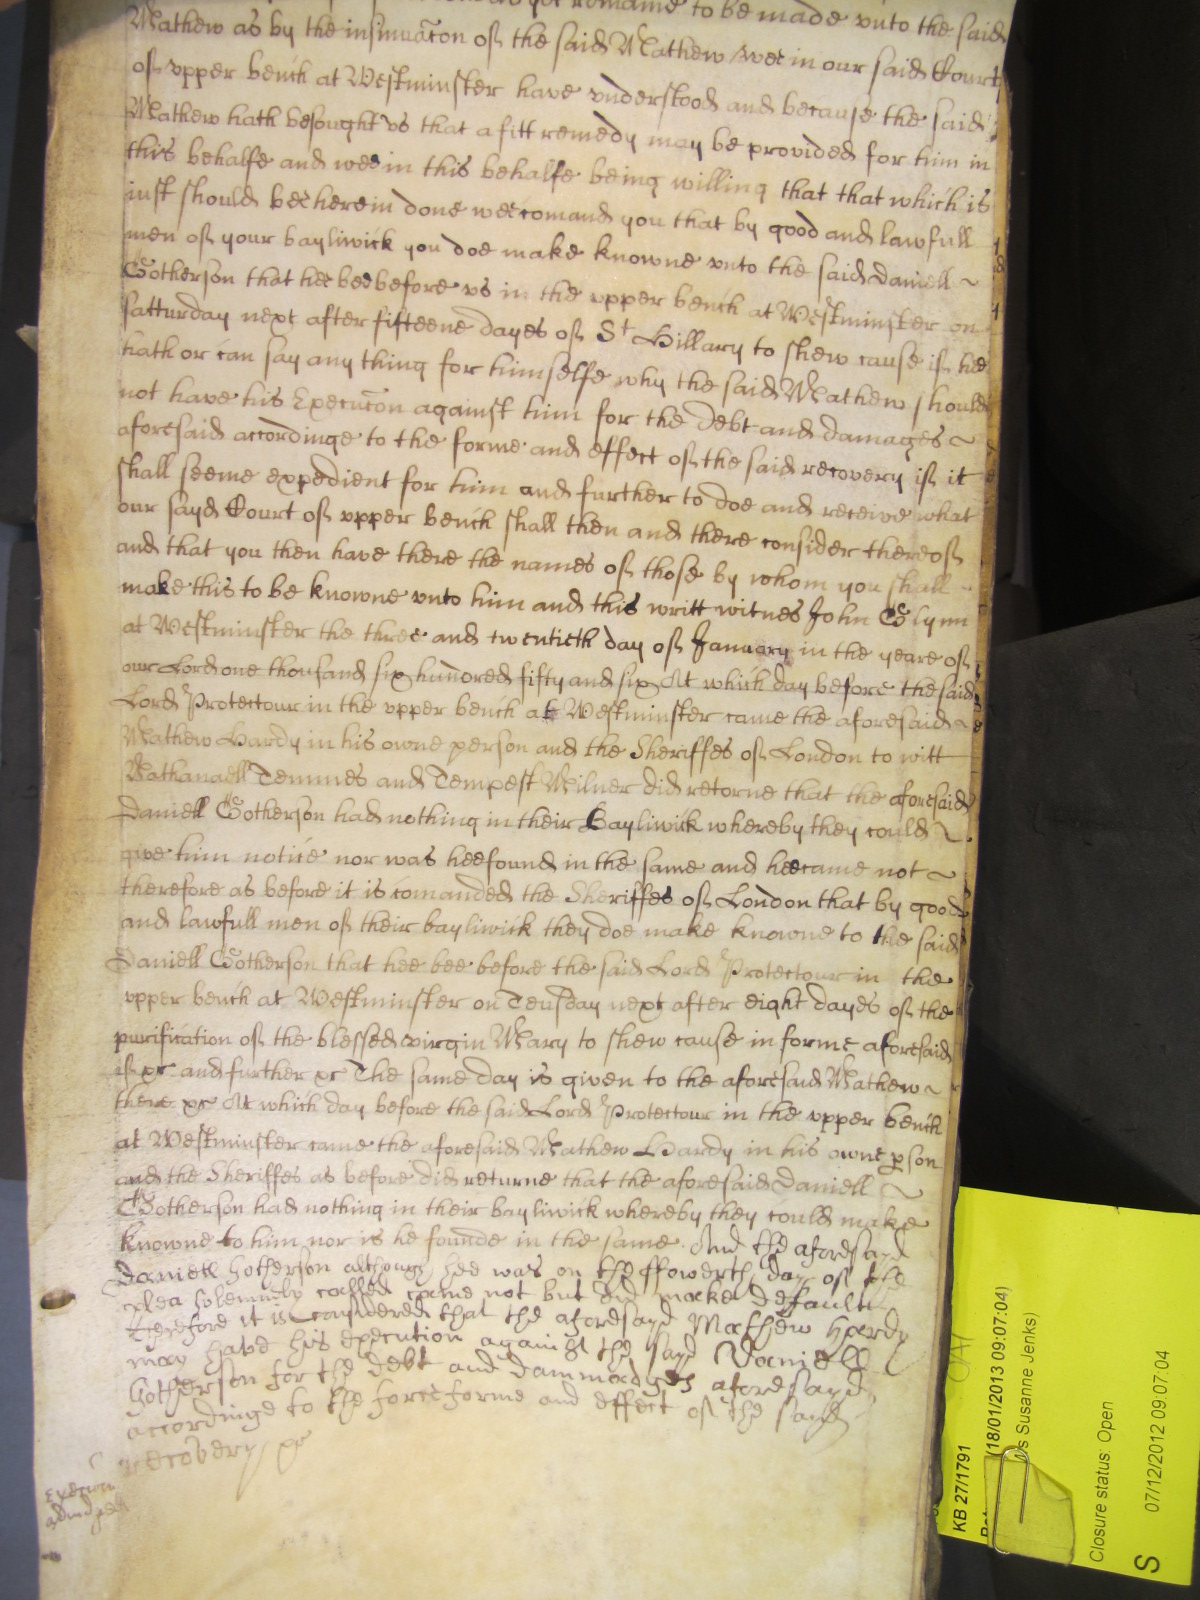 remaine to be made vnto the said
Mathew as by the insinuacon of the said Mathew wee in our said Court
of vpper bench at Westminster have vnderstood and because the said
Mathew hath besought vs that a fitt remedy may be provided for him in
this behalfe and wee in this behalfe being willing that that which is
iust should bee herein done wee comand you that by good and lawfull
men of your bayliwick you doe make knowne vnto the said Daniell ~
Gotherson that hee bee before vs in the vpper bench at Westminster on
satturday next after fifteene dayes of St Hillary to shew cause if hee
hath or can say any thing for himselfe why the said Mathew should
not have his Execucon against him for the debt and damages ~
aforesaid accordinge to the forme and effect of the said recovery if it
shall seeme expedient for him and further to doe and receive what
our sayd Court of vpper bench shall then and there consider thereof
and that you then have there the names of those by whom you shall
make this to be knowne vnto him and this writt witnes John Glynn
at Westminster the three and twentieth day of January in the yeare of
our Lord one thousand six hundred fifty and six At which day before the said
Lord Protectour in the vpper bench at Westminster came the aforesaid ~
Mathew Hardy in his owne person and the Sheriffes of London to witt
Nathanaell Temmes and Tempest Milner did retorne that the aforesaid
Daniell Gotherson had nothing in their Bayliwick whereby they could ~
give him notice nor was hee found in the same and hee came not ~
therefore as before it is comanded the Sheriffes of London that by good
and lawfull men of their bayliwick they doe make knowne to the said
Daniell Gotherson that hee bee before the said Lord Protectour in the
vpper bench at Westminster on Teusday next after eight dayes of the
purification of the blessed virgin Mary to shew cause in forme aforesaid
if xc and further xc The same day is given to the aforesaid Mathew ~
there xc At which day before the said Lord Protectour in the vpper bench
at Westminster came the aforesaid Mathew Hardy in his owne pson
and the Sheriffes as before did returne that the aforesaid Daniell ~
Gotherson had nothing in their bayliwick whereby they could make
knowne to him nor is he founde in the same And the aforesayd
Daniell Gotherson although hee was on the ffowerth day of the
plea solemnely called came not but did make default
therefore it is considered that the aforesayd Mathew Hardy
may have his execution against the sayd Daniell
Gotherson for the debt and dammadges aforesayd
accordinge to the force forme and effect of the sayd
recovery xc
KB 27/1791
(18/01/2013 09:07:04)
Susanne Jenks)
Closure status: Open
S 07/12/2012 09:07:04